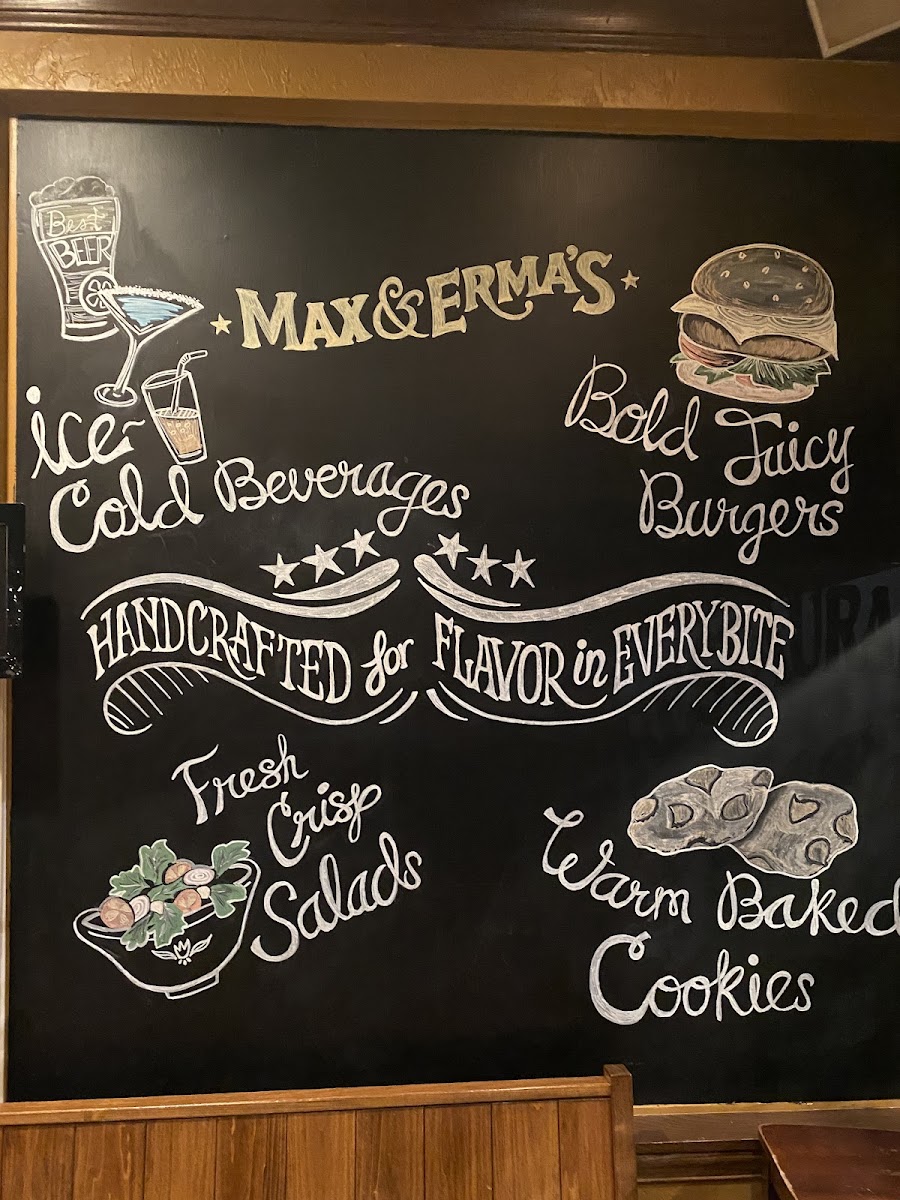 Best
BEER
MAX & ERMA'S
ice-
Cold Beverages
Bold Juicy
Burgers
HANDCRAFTED for FLAVOR in EVERY BITE
Fresh
Crisp
Salads
Warm Baked
Cookies